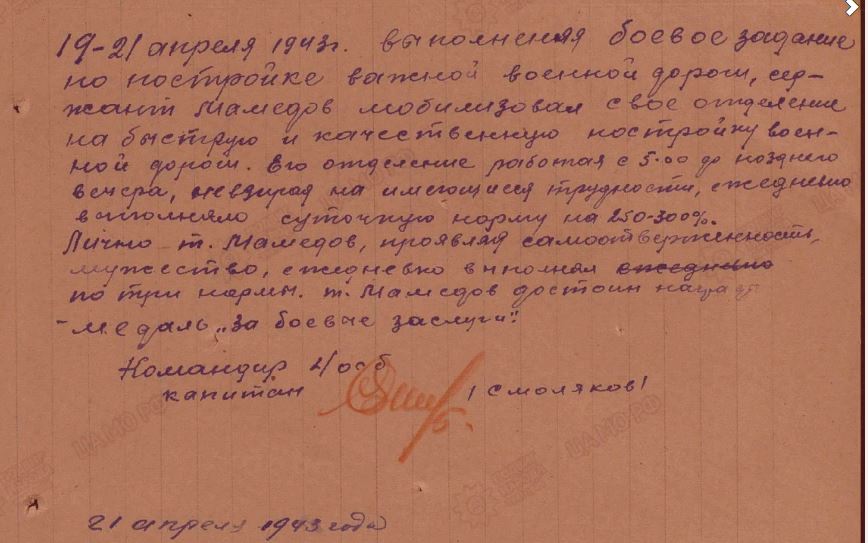 19-21 апреля 1943г. выполняя боевое задание
по постройке важной военной дороги, сер-
жант Мамедов мобилизовал свое отделение
на быструю и качественную постройку воен-
ной дороги. Его отделение работая с 5.00 до позднего
вечера, невзирая на имеющиеся трудности, ежедневно
выполняло суточную норму на 250-300%.
Лично т. Мамедов, проявляя самоотверженность,
мужество, ежедневно выполнял ежедневно
по три нормы. т. Мамедов достоин награды
- медаль „За боевые заслуги".
Командир 4/осб
капитан /Смоляков/
21 апреля 1943 года
ЦАМО РФ
ЦАМО РФ